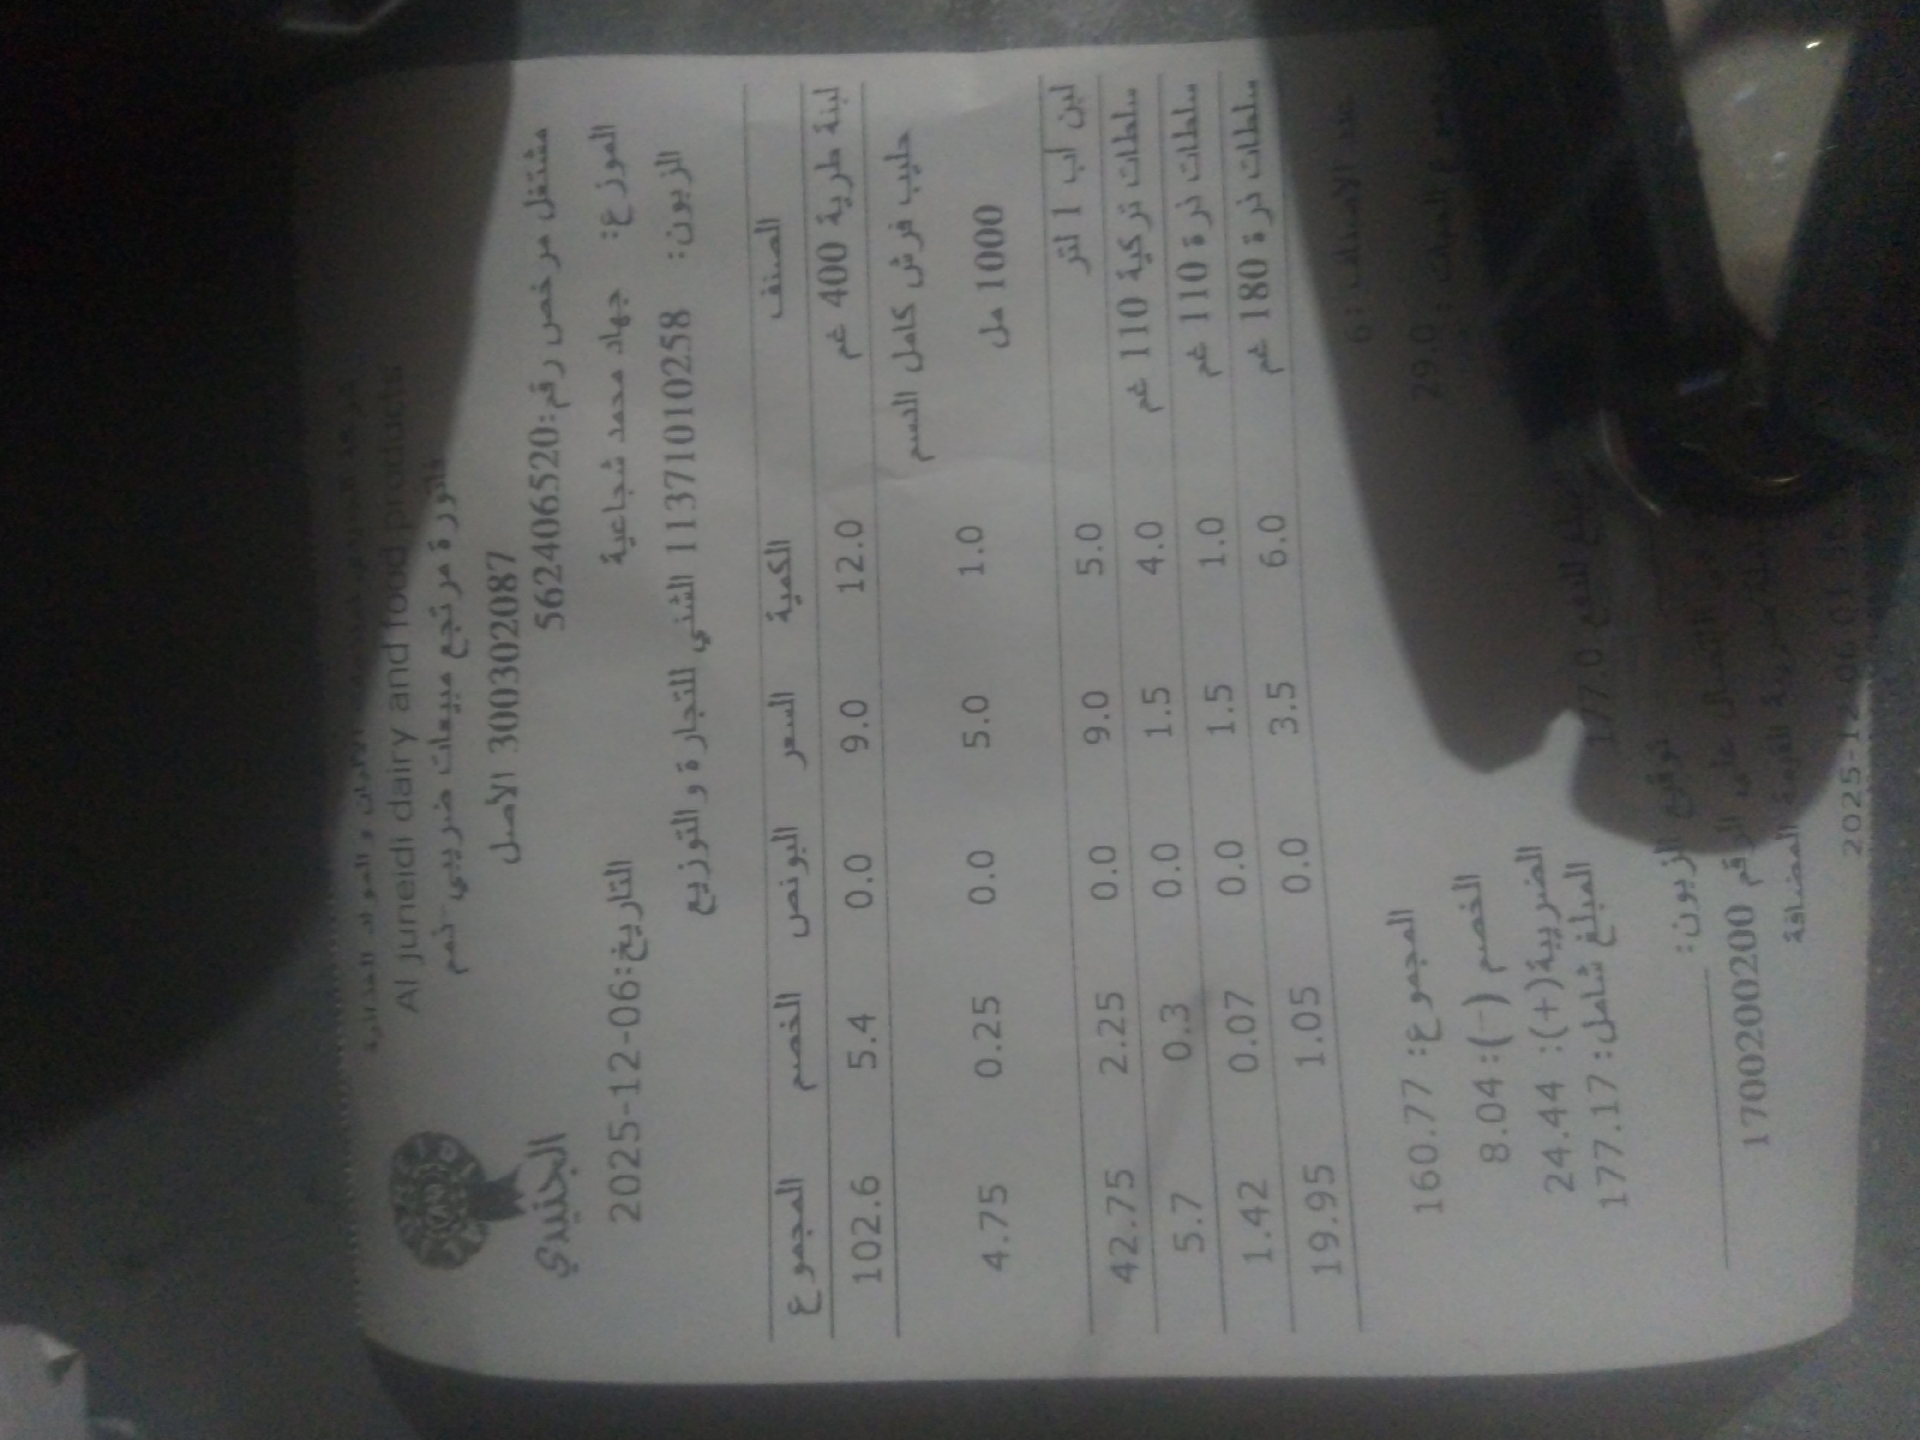 الجنيدي
Al juneidi dairy and food products
فاتورة مرتجع مبيعات ضريبي-نعم
300302087 الأصل
مشتغل مرخص رقم:562406520
الموزع: جهاد محمد شجاعية التاريخ:2025-12-06
الزبون: 1137101010258 الشني للتجارة و التوزيع
الصنف الكمية السعر البونص الخصم المجموع
لبنة طرية 400 غم 12.0 9.0 0.0 5.4 102.6
حليب فرش كامل الدسم 1000 مل 1.0 5.0 0.0 0.25 4.75
لبن اب 1 لتر 5.0 9.0 0.0 2.25 42.75
سلطات تركية 110 غم 4.0 1.5 0.0 0.3 5.7
سلطات ذرة 110 غم 1.0 1.5 0.0 0.07 1.42
سلطات ذرة 180 غم 6.0 3.5 0.0 1.05 19.95
عدد الاصناف: 6
29.0
المجموع: 160.77
الخصم (-): 8.04
الضريبة(+): 24.44
المبلغ شامل: 177.17
177.0
توقيع الزبون:
الرقم 1700200200
المضافة
2025-12-06 01